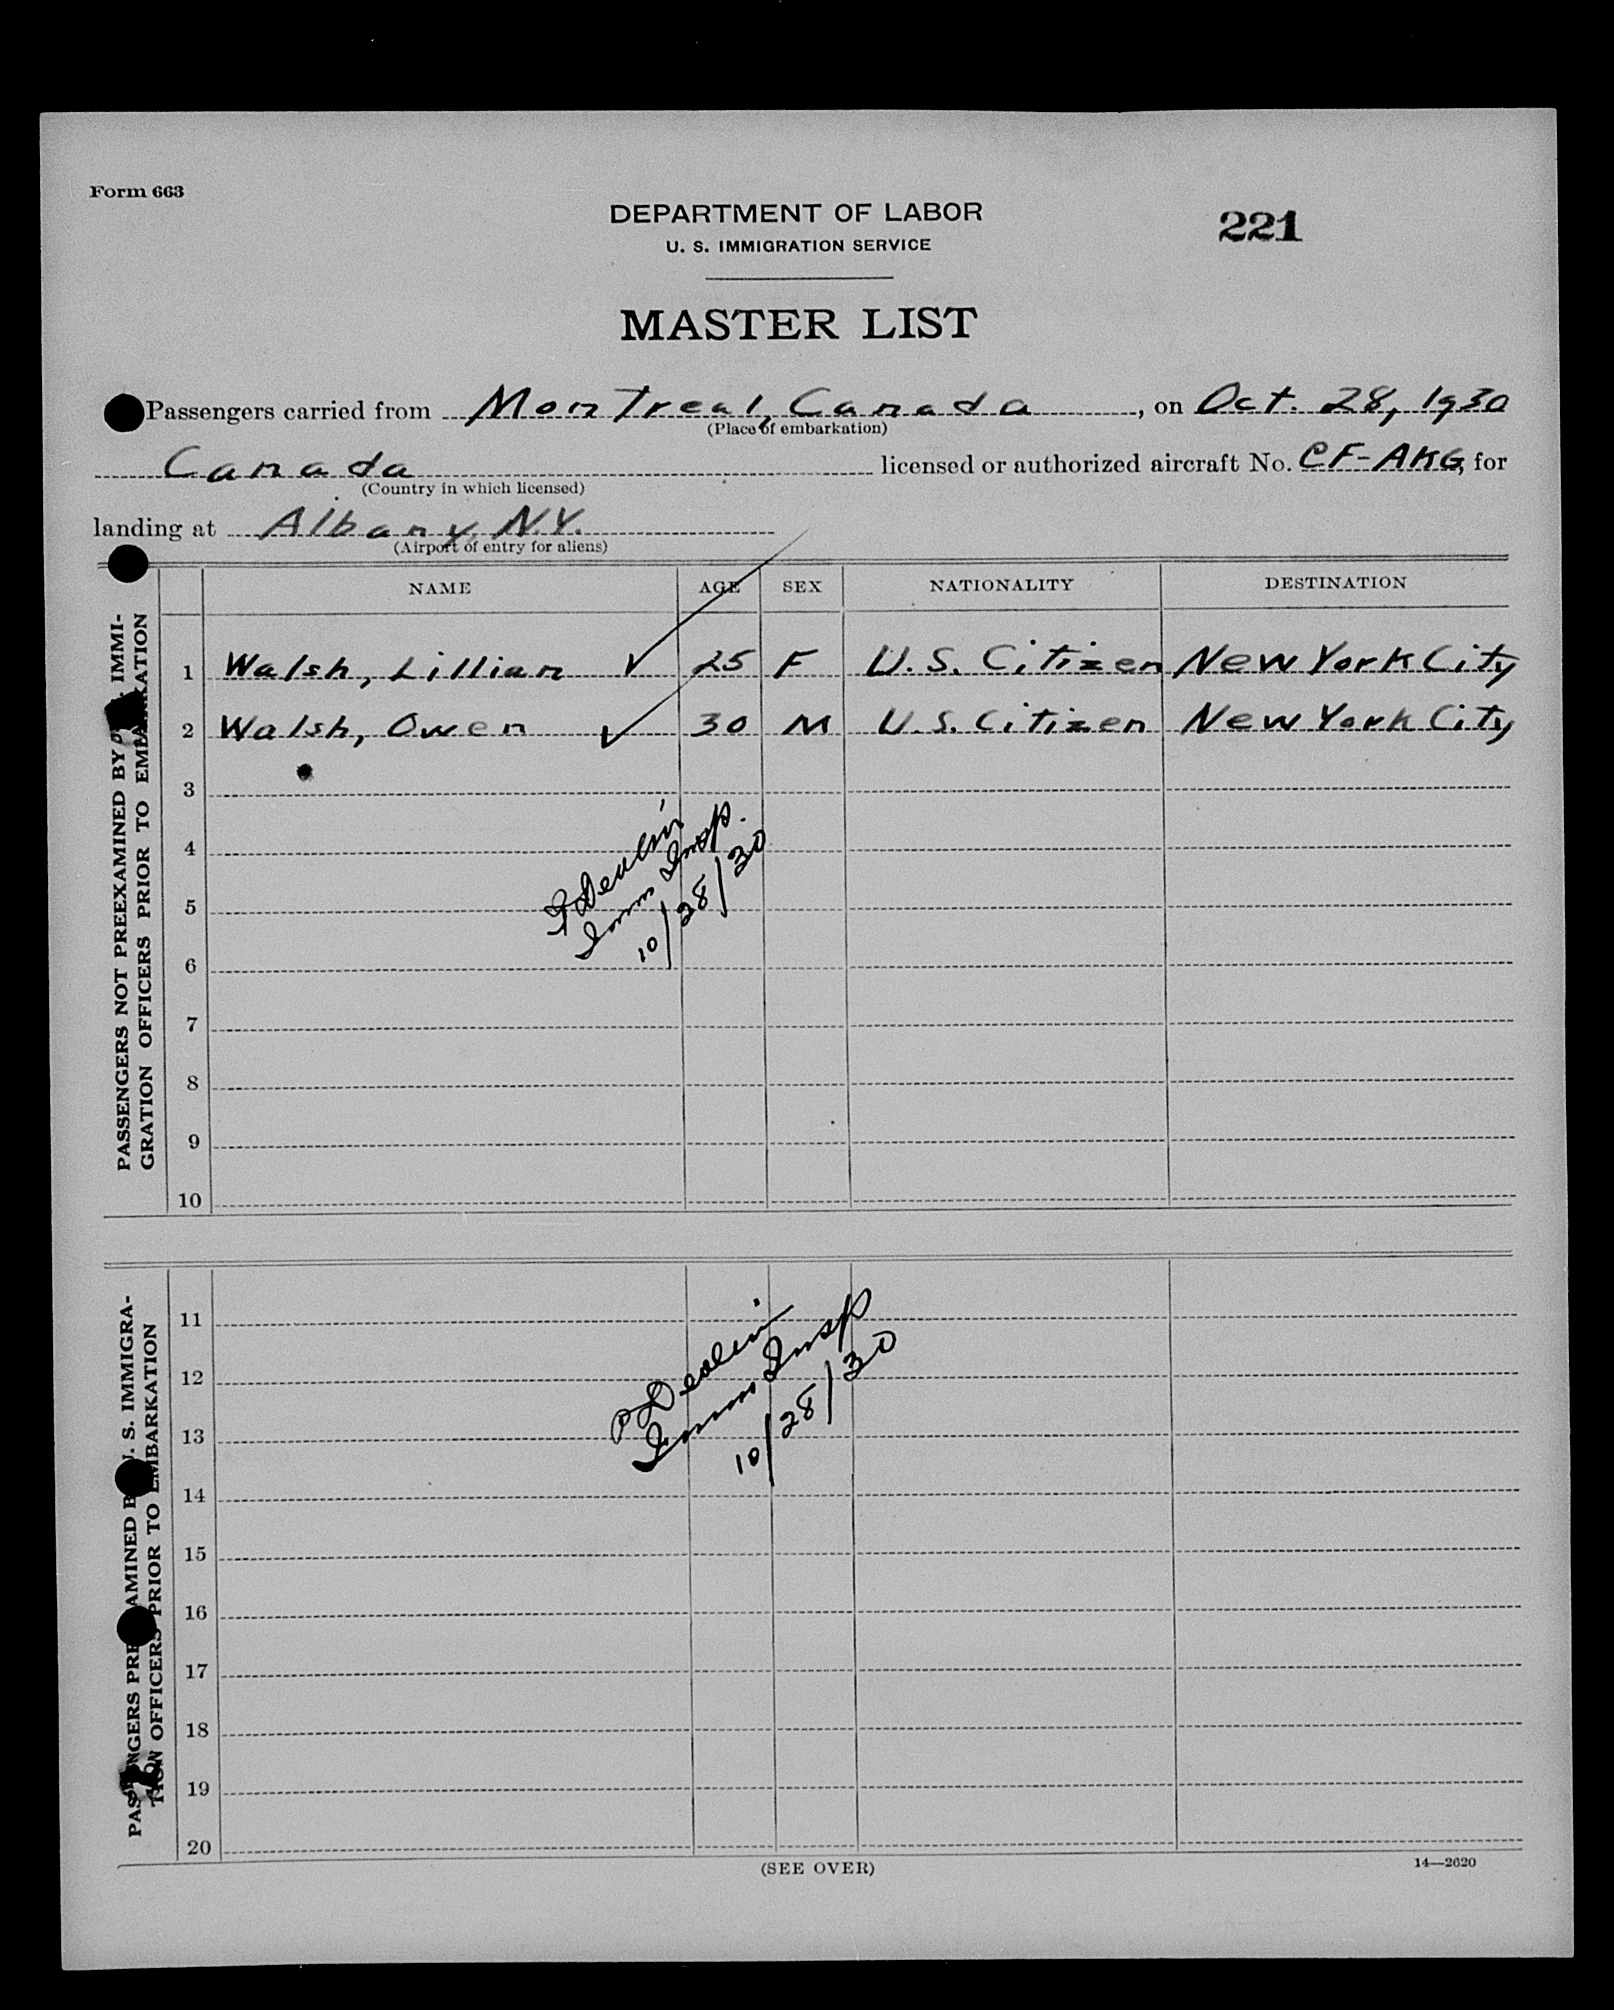 Form 663
DEPARTMENT OF LABOR
U. S. IMMIGRATION SERVICE
221
MASTER LIST
Passengers carried from Montreal, Canada, on Oct. 28, 1930
(Place of embarkation)
Canada licensed or authorized aircraft No. CF-AKG, for
(Country in which licensed)
landing at Albany, N.Y.
(Airport of entry for aliens)
NAME AGE SEX NATIONALITY DESTINATION
PASSENGERS NOT PREEXAMINED BY IMMI-
GRATION OFFICERS PRIOR TO EMBARKATION
1 Walsh, Lillian ✓ 25 F U.S. Citizen New York City
2 Walsh, Owen ✓ 30 M U.S. Citizen New York City
3
4
5
6
7
8
9
10
P Devlin
Imm Insp.
10/28/30
PASSENGERS PREEXAMINED BY U. S. IMMIGRA-
TION OFFICERS PRIOR TO EMBARKATION
11
12
13
14
15
16
17
18
19
20
P Devlin
Imm Insp
10/28/30
(SEE OVER)
14—2620